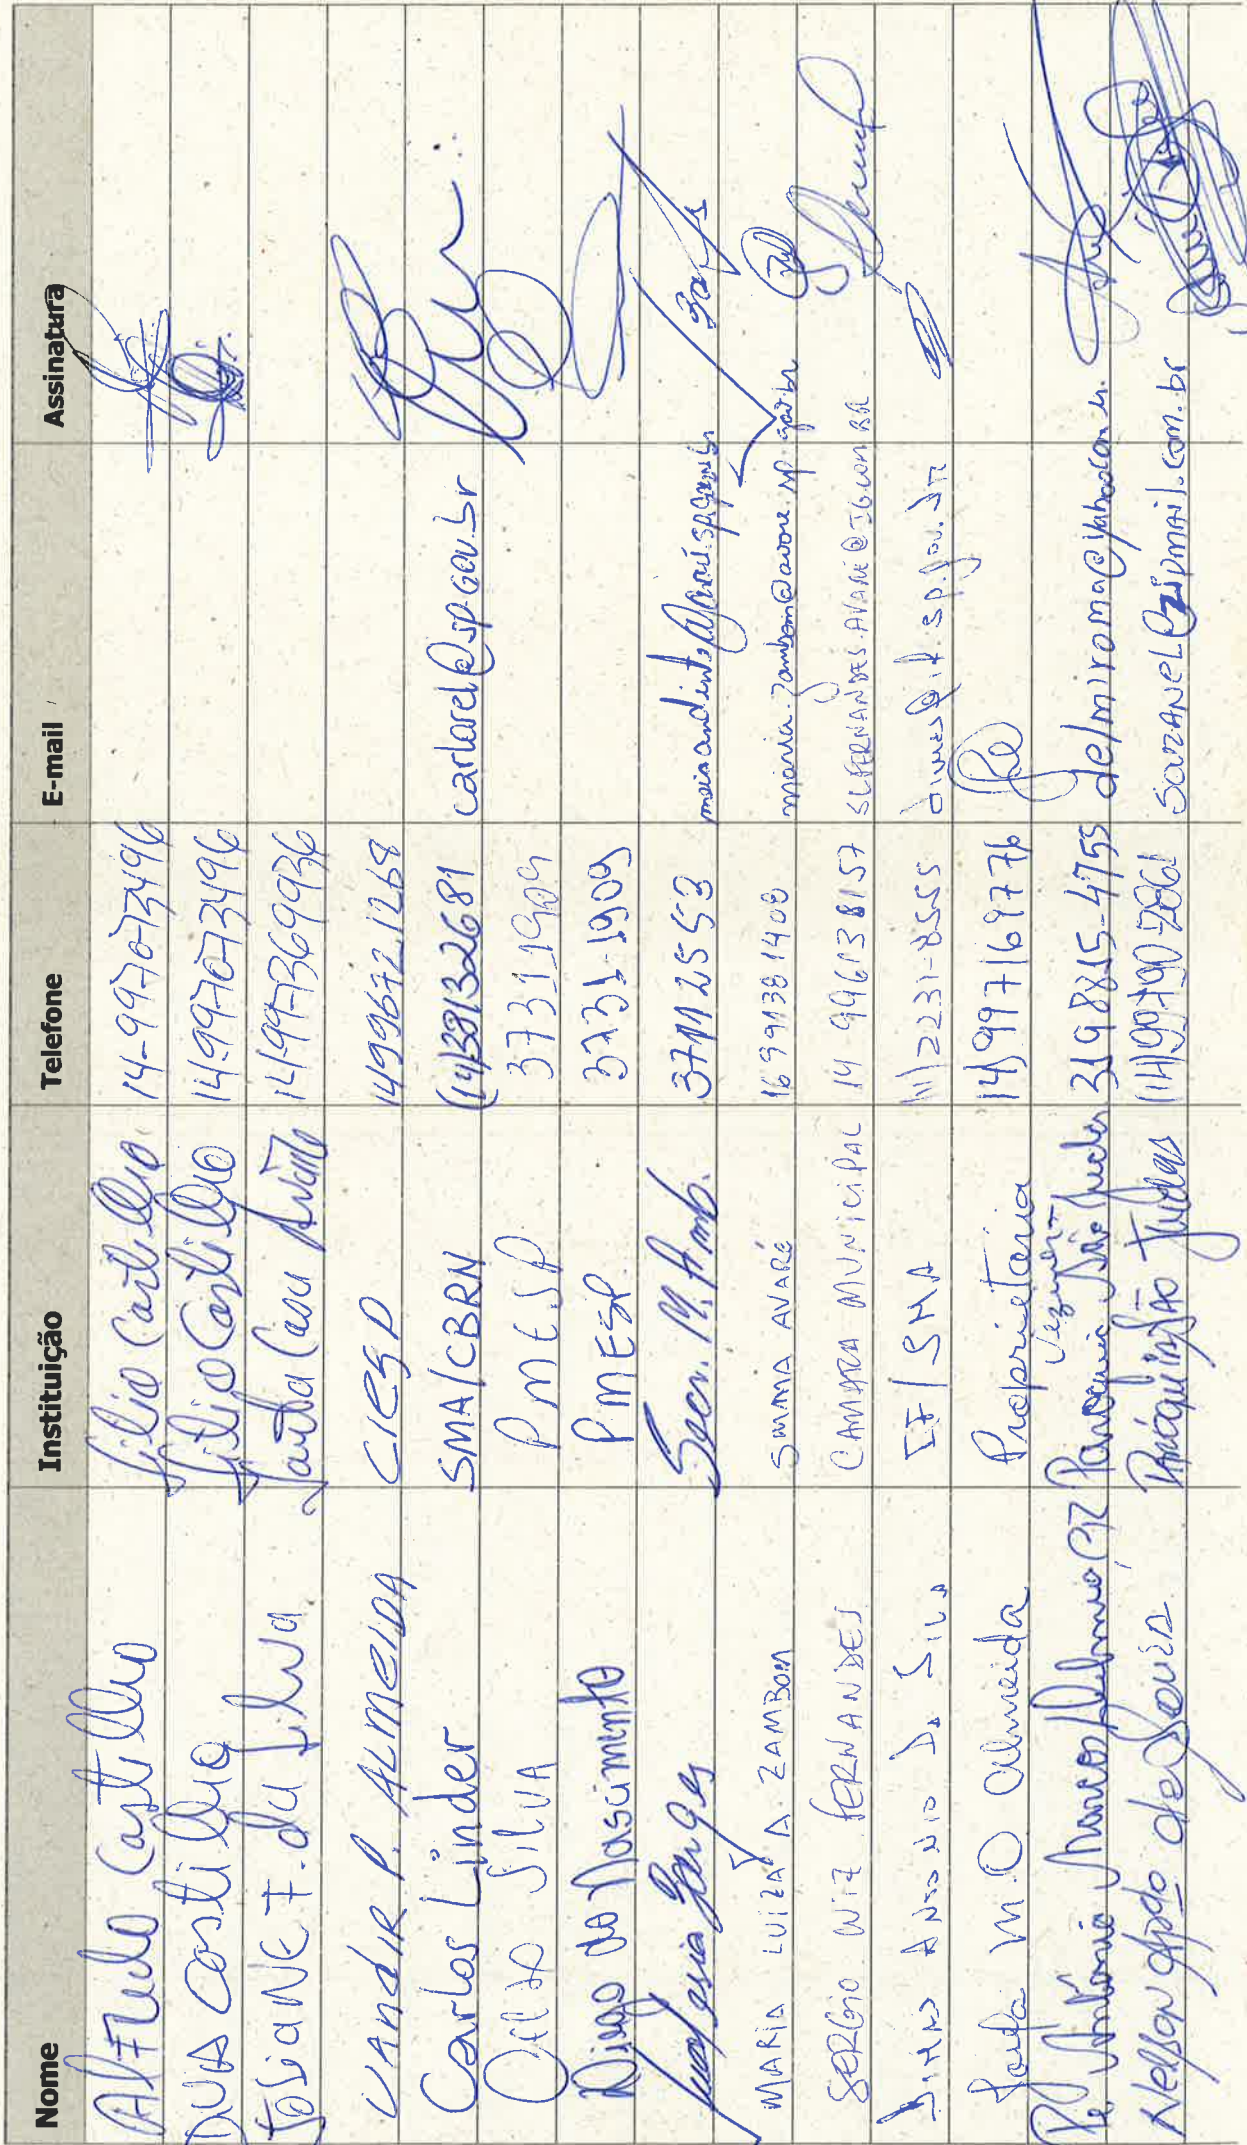 Nome Instituição Telefone E-mail Assinatura
Alfredo Castilho Sítio Castilho 14-997073496
Castilho Sítio Castilho 14997073496
Josiane F. da Silva Santa Casa Avaré 14997369936
Vandir P. Almeida CIESP 14996721268
Carlos Linder SMA/CBRN (14)38132681 carlosrl@sp.gov.br
Silva PMESP 3731-1909
Diego do Nascimento PMESP 3731-1909
Borges Secr. M. Amb. 37112553
Maria Luiza A. Zambom SMMA Avaré 16 991381408 maria.zambom@avare.sp.gov.br
Sergio Luiz Fernandes Camara Municipal 14 996138157 SLFERNANDES.AVARE@IG.COM.BR
Antonio da Silva IF/SMA 11) 2231-8555
M.O Almeida Proprietária 14) 997169776
Vizinho
Pe Antônio Marcos Delmiro Paróquia São Judas 319 8815-4755 delmiroma@yahoo.com.br
Nelson Apdo de Souza Paróquia São Judas (14) 997907861 souzanel@zipmail.com.br